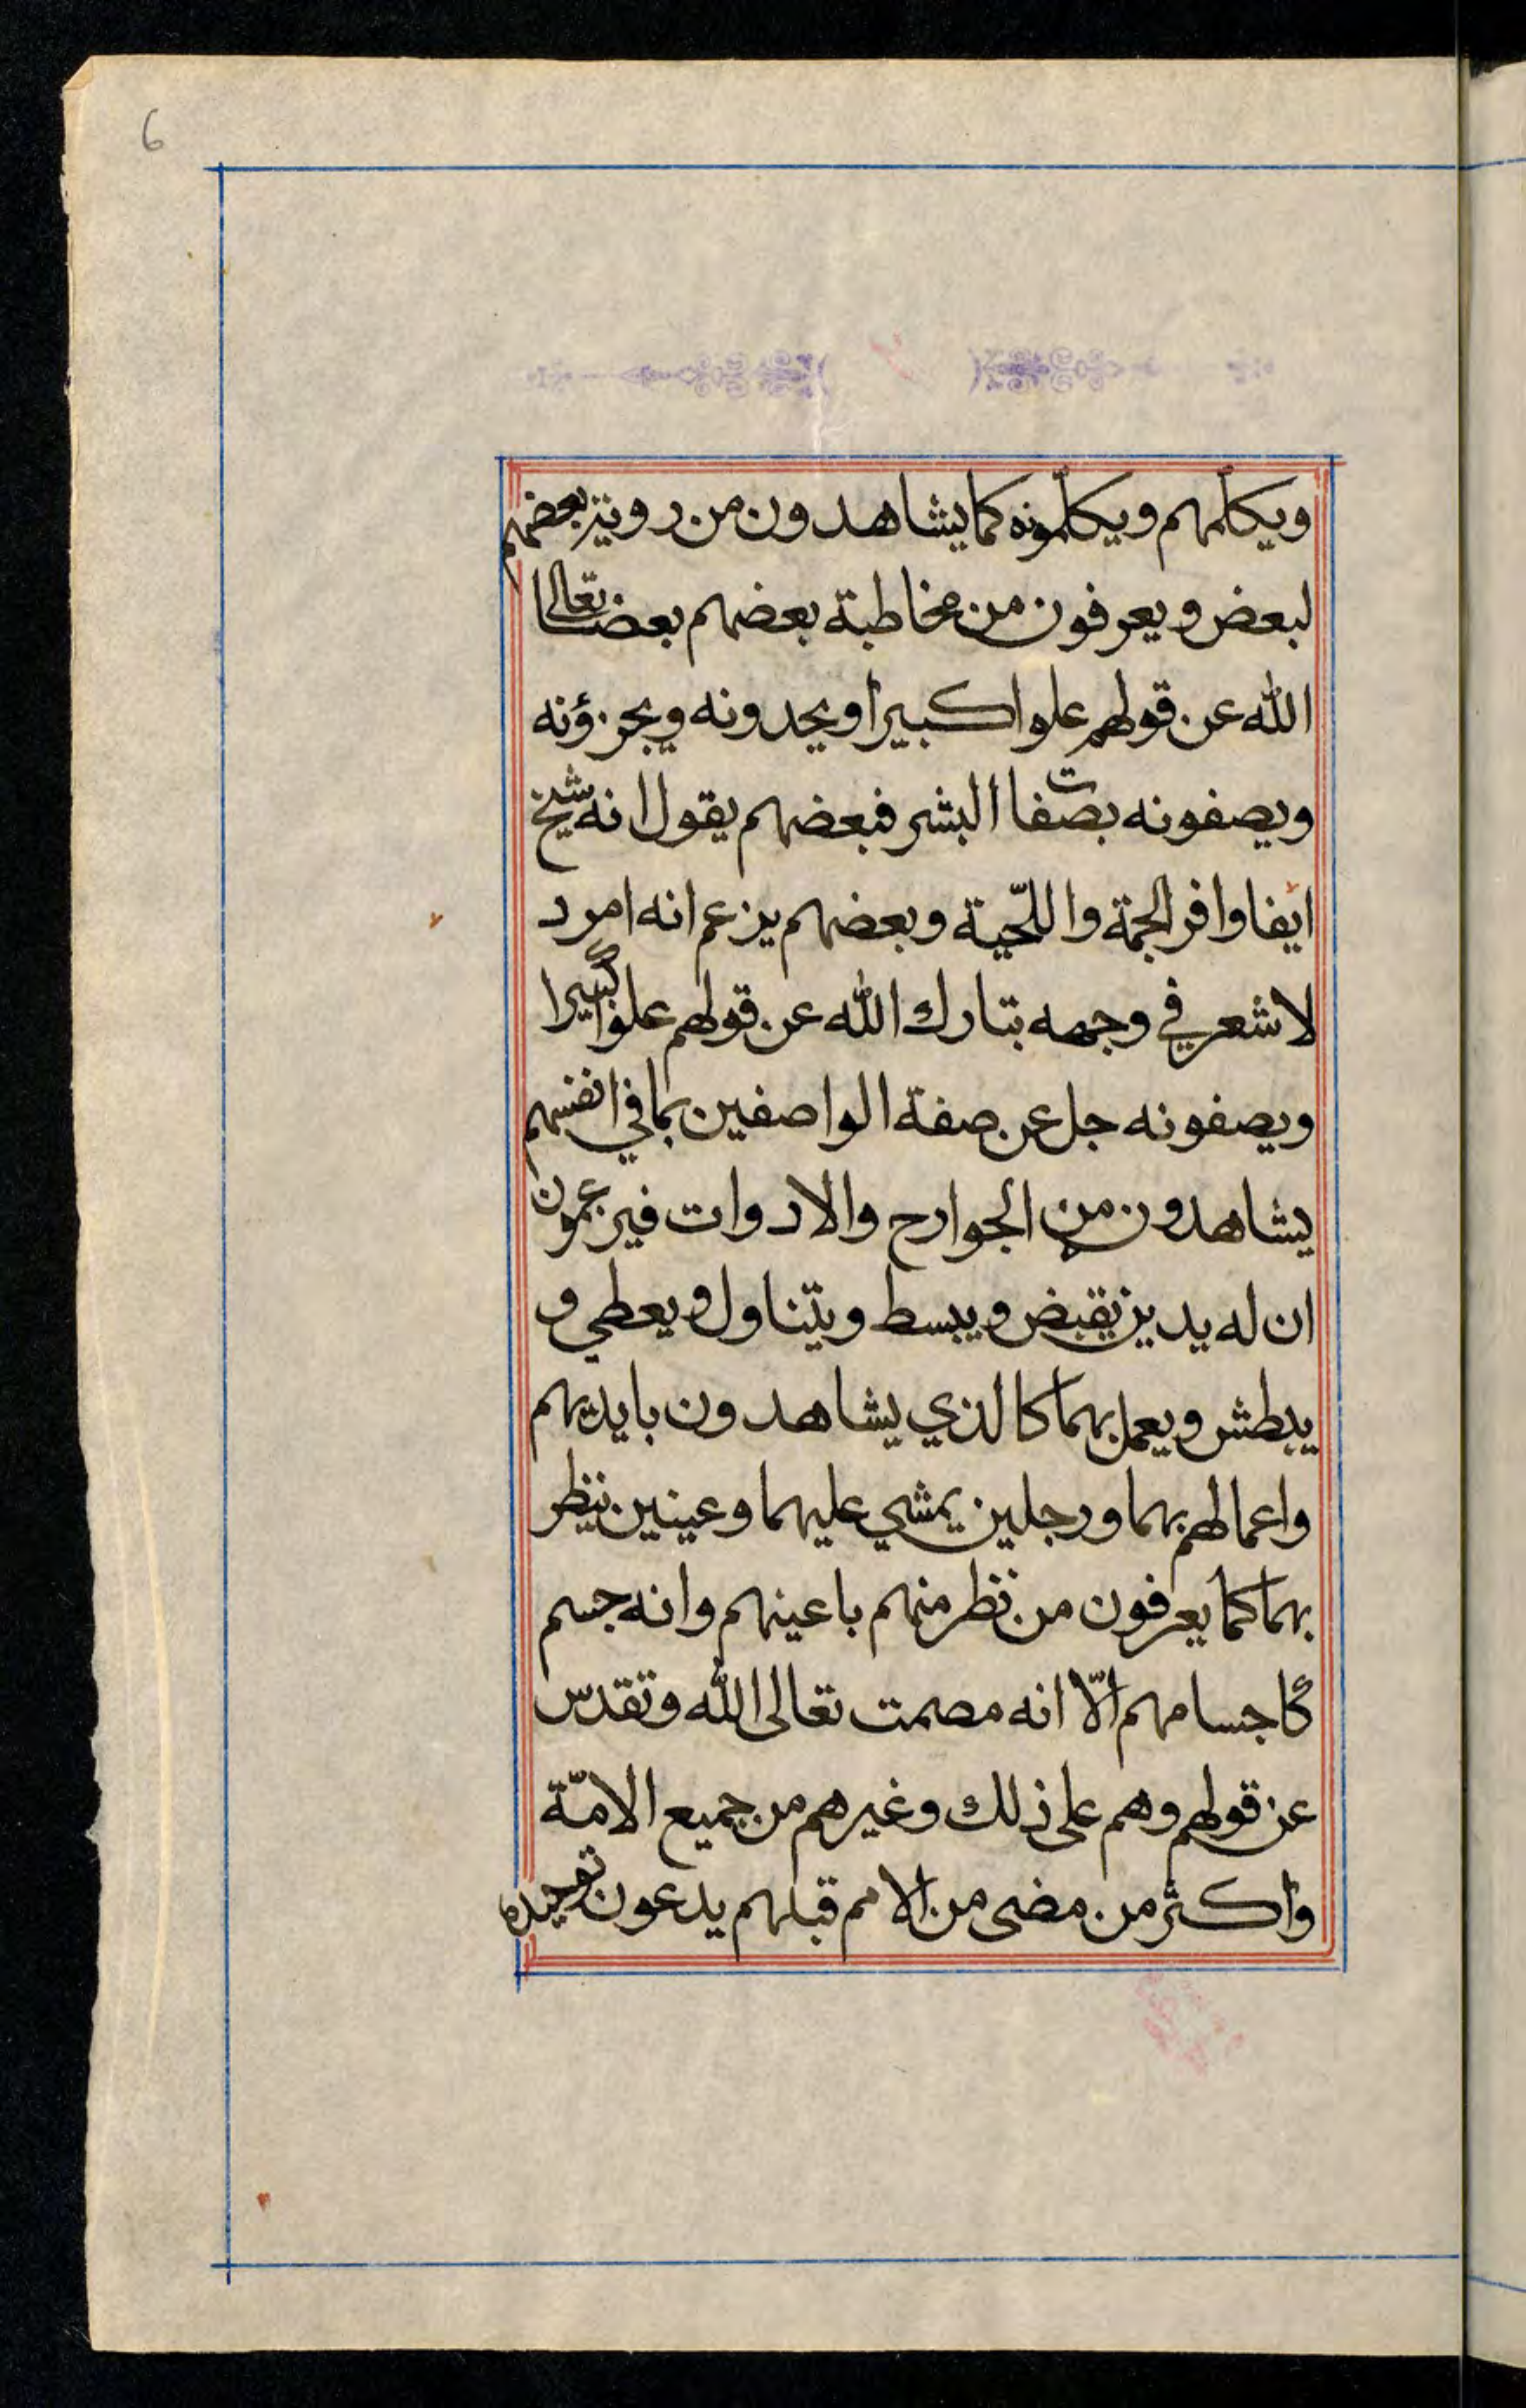 6
ويكلمهم ويكلّمونه كما يشاهدون من روية بعضهم
لبعض ويعرفون من مخاطبة بعضهم بعضا تعالى
الله عن قولهم علوا كبيرا ويحدونه ويجزؤنه
ويصفونه بصفات البشر فبعضهم يقول انه شيخ
ايفا وافر الجمة واللّحية وبعضهم يزعم انه امرد
لا شعر في وجهه تبارك الله عن قولهم علوا كبيرا
ويصفونه جل عن صفة الواصفين بما في انفسهم
يشاهدون من الجوارح والادوات فيزعمون
ان له يدين يقبض ويبسط ويتناول ويعطي و
يبطش ويعمل بهما كالذي يشاهدون بايديهم
واعمالهم بهما ورجلين يمشي عليهما وعينين ينظر
بهما كما يعرفون من نظر منهم باعينهم وانه جسم
كاجسامهم الّا انه مصمت تعالى الله وتقدس
عن قولهم وهم على ذلك وغيرهم من جميع الامّة
واكثر من مضى من الامم قبلهم يدعون توحيده